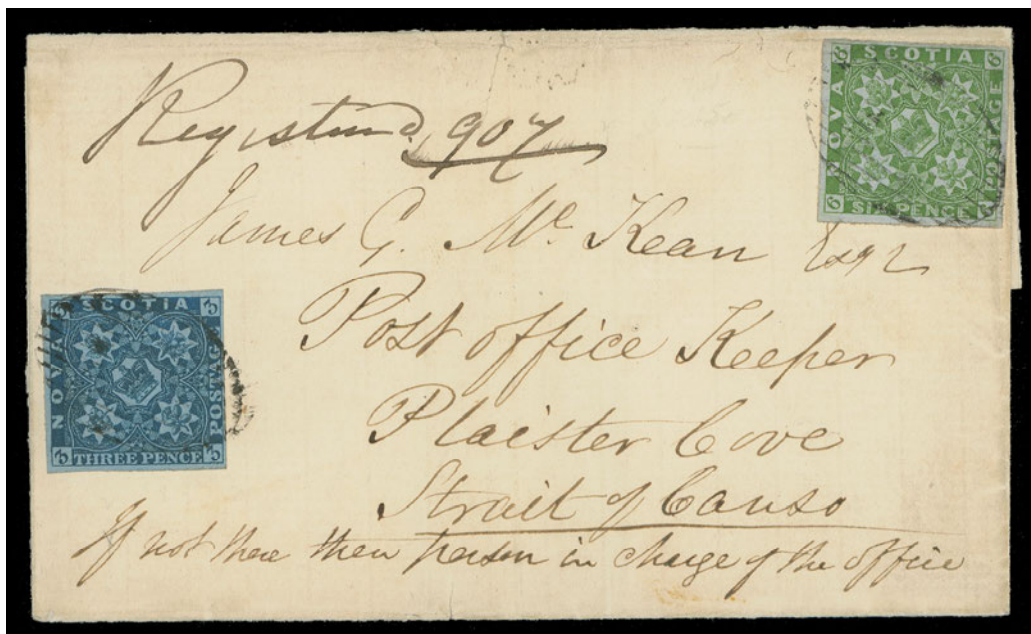 Registered 907
James G. Mc Kean Esqr
Post office Keeper
Plaister Cove
Strait of Canso
If not there then person in charge of the office
NOVA SCOTIA POSTAGE
SIX PENCE
6 6 6 6
NOVA SCOTIA POSTAGE
THREE PENCE
3 3 3 3